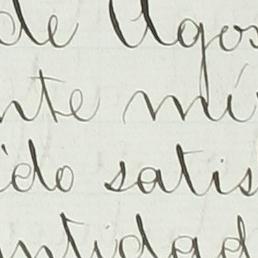 de Agos
nte mí
ido satis
ntidad